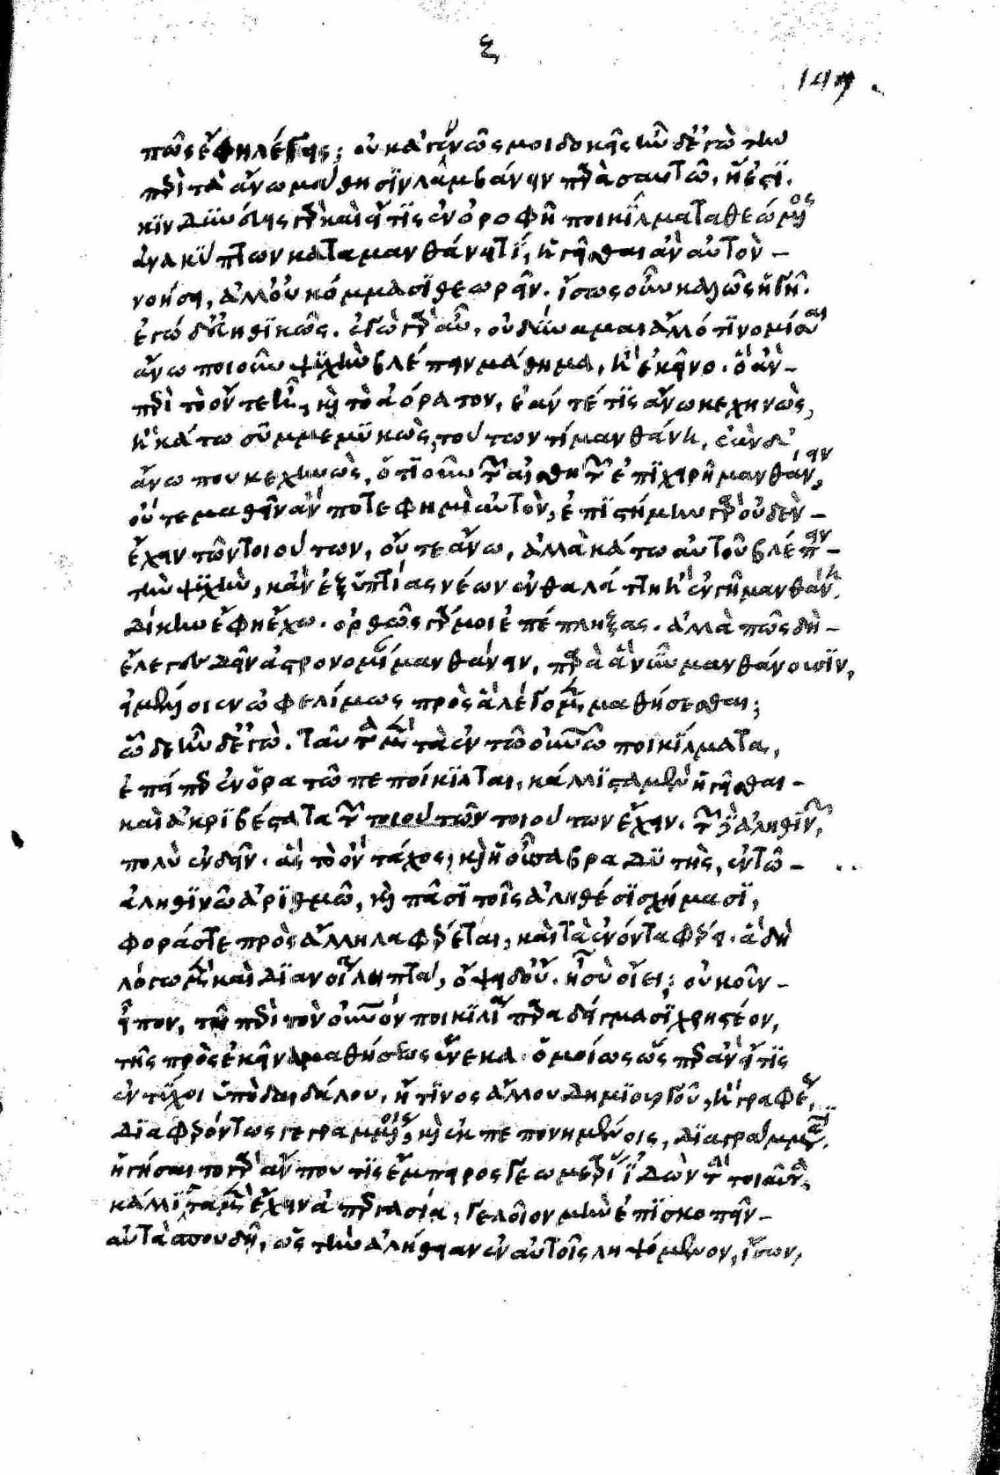 ξ
147
πῶς ἔφη λέγεις; οὐκ ἀγεννῶς μοι δοκεῖς ἦν δ' ἐγὼ τὴν
περὶ τὰ ἄνω μάθησιν λαμβάνειν παρὰ σαυτῶ, ἥ ἐστι.
κινδυνεύεις γὰρ καὶ εἴ τις ἐν ὀροφῆ ποικίλματα θεώμενος
ἀνακύπτων καταμανθάνει τί, ἡγεῖσθαι ἂν αὐτὸν
νοήσει, ἀλλ' οὐκ ὄμμασι θεωρεῖν. ἴσως οὖν καλῶς ἡγῆ.
ἐγὼ δ' εὐηθικῶς. ἐγὼ γὰρ αὖ, οὐ δύναμαι ἄλλό τι νομίσαι
ἄνω ποιοῦν ψυχὴν βλέπειν μάθημα, ἢ ἐκεῖνο. ὃ ἂν
περὶ τὸ ὄν τε ᾖ, καὶ τὸ ἀόρατον, ἐάν τέ τις ἄνω κεχηνὼς,
ἢ κάτω συμμεμυκὼς, τούτων τί μανθάνη, ἐὰν δ'
ἄνω που κεχηνὼς, ὁτιοῦν τῶν αἰσθητῶν ἐπιχειρῆ μανθάνειν,
οὔτε μαθεῖν ἄν ποτέ φημι αὐτὸν, ἐπιστήμην γὰρ οὐδὲν
ἔχειν τῶν τοιούτων, οὔτε ἄνω, ἀλλὰ κάτω αὐτοῦ βλέπειν
τὴν ψυχὴν, κἂν ἐξ ὑπτίας νέων ἐν θαλάττη ἢ ἐν γῆ μανθάνη.
δίκην ἔφη ἔχω. ὀρθῶς γάρ μοι ἐπέπληξας. ἀλλὰ πῶς δὴ
ἔλεγες δεῖν ἀστρονομίαν μανθάνειν, παρὰ ἃ νῦν μανθάνουσιν,
εἰ μέλλοιεν ὠφελίμως πρὸς ἃ λέγομεν μαθήσεσθαι;
ὧδε ἦν δ' ἐγὼ. ταῦτα μὲν τὰ ἐν τῶ οὐνῶ ποικίλματα,
ἐπείπερ ἐν ὁρατῶ πεποίκιλται, κάλλιστα μὲν ἡγεῖσθαι
καὶ ἀκριβέστατα τῶν τοιούτων ἔχειν. τῶν δὲ ἀληθινῶν,
πολὺ ἐνδεῖν. ἃς τὸ ὂν τάχος, καὶ ἡ οὖσα βραδυτὴς, ἐν τῶ
ἀληθινῶ ἀριθμῶ, καὶ πᾶσι τοῖς ἀληθέσι σχήμασι,
φοράς τε πρὸς ἄλληλα φέρεται, καὶ τὰ ἐνόντα φέρει. ἃ δὴ
λόγω μὲν καὶ διανοία ληπτὰ, ὄψει δ' οὔ. ἢ σὺ οἴει; οὐκοῦν
εἶπον, τῆ περὶ τὸν οὐνὸν ποικιλία παραδείγμασι χρηστέον,
τῆς πρὸς ἐκεῖνα μαθήσεως ἕνεκα. ὁμοίως ὥσπερ ἂν εἴ τις
ἐντύχοι ὑπὸ δαιδάλου, ἤ τινος ἄλλου δημιουργοῦ, ἢ γραφέως,
διαφερόντως γεγραμμένοις, καὶ ἐκπεπονημένοις, διαγράμμασι.
ἡγήσαιτο γὰρ ἄν που τὶς ἔμπειρος γεωμετρίας ἰδὼν τὰ τοιαῦτα,
κάλλιστα μὲν ἔχειν ἀπεργασία, γελοῖον μὴν ἐπισκοπεῖν
αὐτὰ σπουδῆ, ὡς τὴν ἀλήθειαν ἐν αὐτοῖς ληψόμενον, ἴσων,